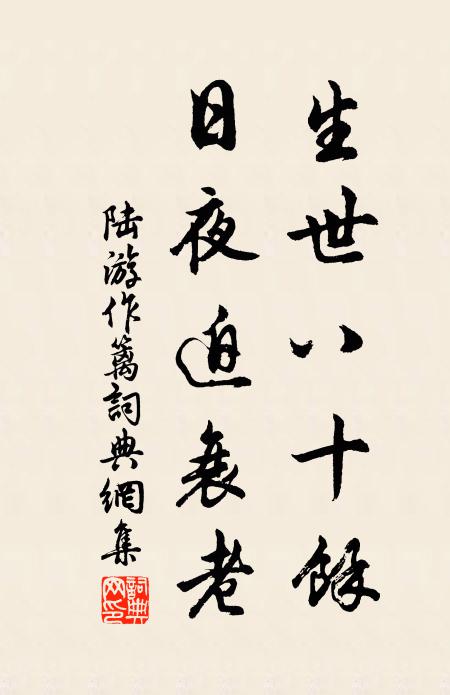 生世八十餘
日夜迫衰老
陆游作篱詞典網集
詞典网印